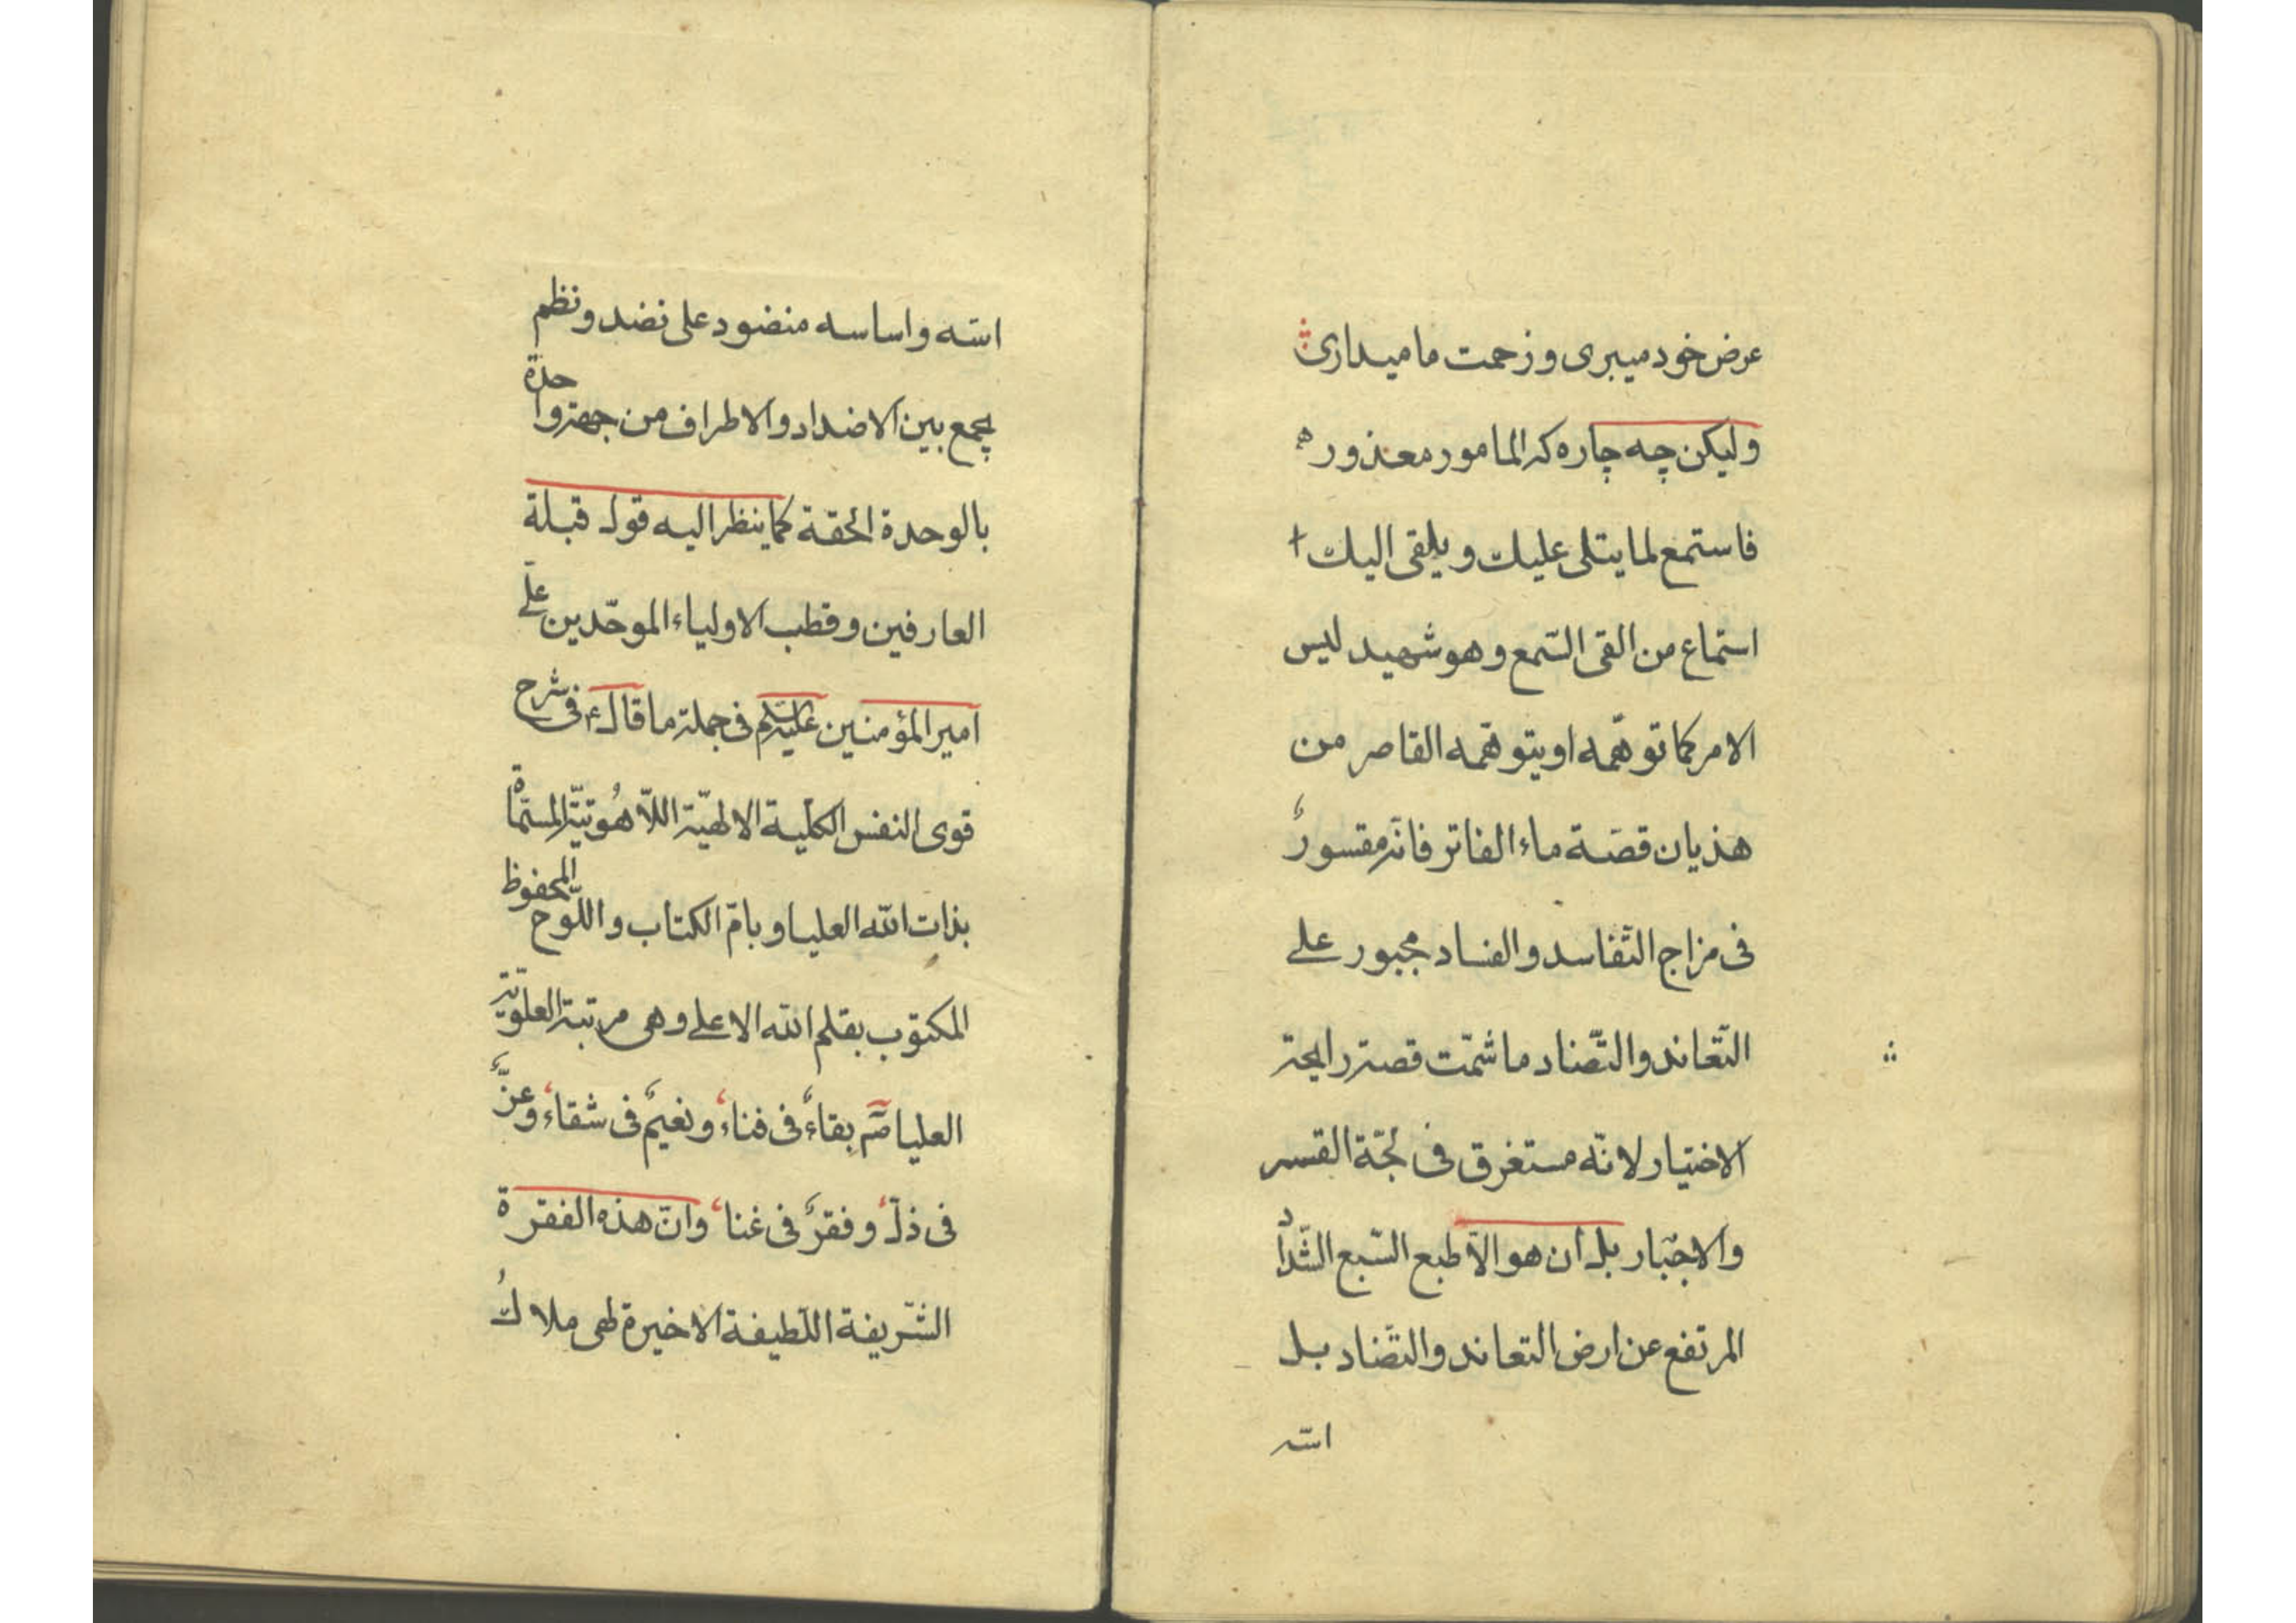 عرض خود میبری و زحمت ما میداری
ولیکن چه چاره که المامور معذور ه
فاستمع لما یتلی علیك و یلقی الیك
استماع من القی السّمع و هو شهید لیس
الامر کما توهّمه او یتوهّمه القاصر من
هذیان قصّة ماء الفاتر فانّه مقسورٌ
فی مزاج التّفاسد و الفساد مجبور علی
التّعاند والتّضاد ما شمّت قصته رایحة
الاختیار لانّه مستغرق فی لجّة القسر
والاجبار بل ان هو الّا طبع السّبع الشّداد
المرتفع عن ارض التعاند والتّضاد بل
اسّه
اسّه و اساسه منضود علی نضد و نظم
یجمع بین الاضداد والاطراف من جهة واحدة
بالوحدة الحقة کما ینظر الیه قول قبلة
العارفین و قطب الاولیاء الموحّدین علی
امیر المؤمنین علیه السلم فی جملة ما قال ع فی شرح
قوی النفس الکلّیة الالهیّة اللّاهُوتیّة المسمّاة
بذات اللّه العلیا و بامّ الکتاب و اللّوح المحفوظ
المکتوب بقلم اللّه الاعلی و هی مرتبة العلویّة
العلیا بقاءٌ فی فناء و نعیمٌ فی شقاء وعزٌّ
فی ذلّ و فقرٌ فی غناء وانّ هذه الفقرة
الشّریفة اللّطیفة الاخیرة لهی ملاكُ